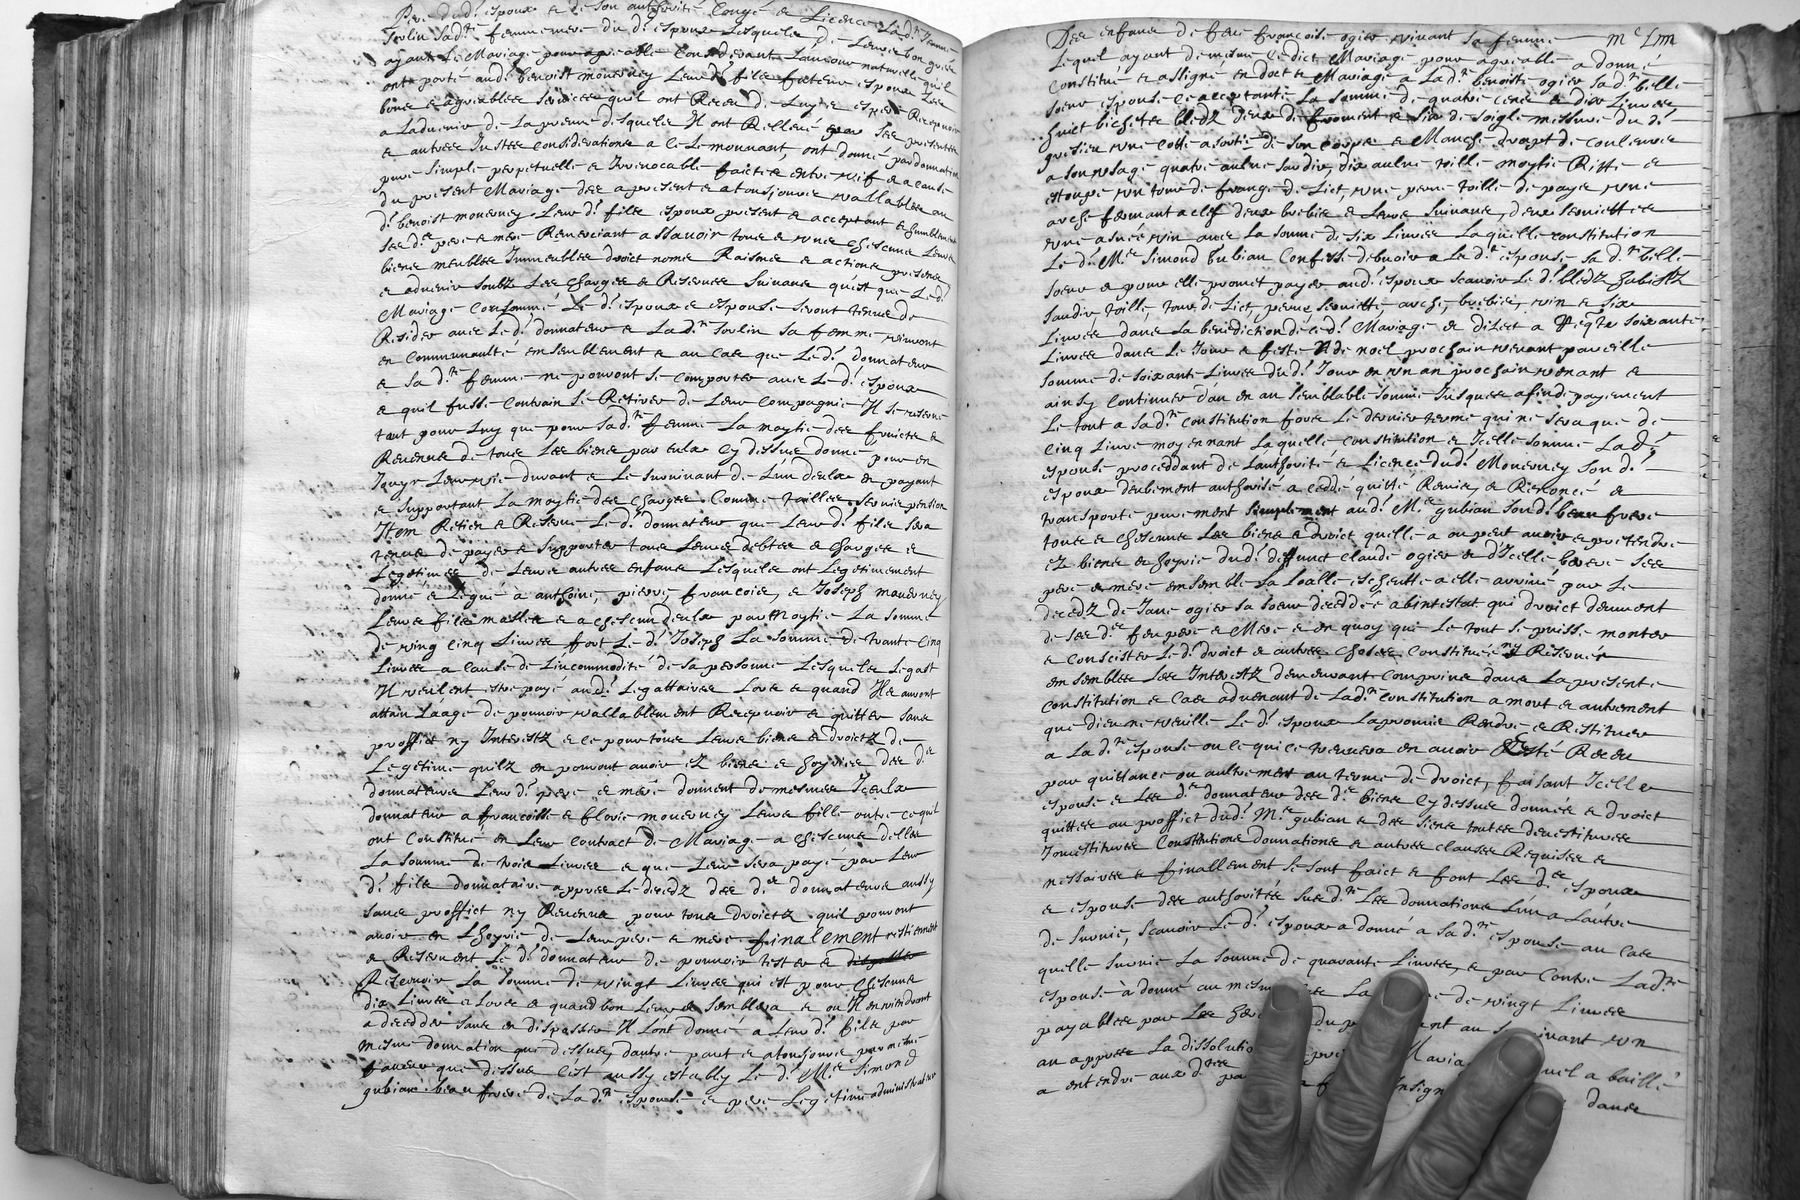 Pere dud.t espoux & de son authorité Congé & Licence La d.te Jeanne
Joulin sad.te femme mere du d.t espoux Lesquels de Leurs bon grés
ayant Le Mariage pour agreable Considerant Lamour naturelle quil
ont porté aud.t benoist mouerney Leur d.t fils futeur espoux Les
bons & agreables services quil ont Receu de Luy & espere Recepuoir
a Laduenir de La preuue desquels Il ont Relleué par Ses presentes
& autres Justes considerations a ce Le mouuant, ont donné par donnation
pure simple perpetuelle & Irreuocable faictes entre vifs & a cause
du present Mariage des a present & a tousjours vallables au
d.t benoist mouerney Leur d.t fils espoux present & acceptant & humblement
ses d.ts pere & mere Remerciant assauoir tous & uns chescuns Leurs
biens meubles Immeubles droict noms Raisons & actions presens
& aduenir soubz Les charges & Reserues Suiuans quest que Led.
Mariage Consommé Le d.t espoux & espouse seront tenus de
Resider auec Le d.t donnateur & La d.te Joulin sa femme viuront
en Communaulté ensemblement & au cas que Le d.t donnateur
& sa d.te femme ne pouront se comporter auec Le d.t espoux
& quil fusse contrain se Retirer de Leur compagnie Il se reserue
tant pour Luy que pour sad.te femme La moytie des fruicts &
Reuenus de tous Les biens par eulx cy dessus donné pour en
Jouyr Leur vie durant & Le suruiuant de Lun deulx en payant
& supportant La moytie des charges Comme tailles, seruis pension
Item Retien & Reserue Le d.t donnateur que Leur d.t fils sera
tenus de payer & supporter tous Leurs debtes & charges &
Legetimes de Leurs autres enfans Lesquels ont Legetimement
donné & Legué a anthoine, pierre francois, & Joseph mouerney
Leurs fils masles & a chescun deulx par Moytie La somme
de vingt cinq Liures fort Le d.t Joseph La somme de trante cinq
Liures a cause de Lincommodité de sa personne Lesquels Legast
Il veulent estre payé aud.t Legattaires Lors & quand Ils auront
attain Laage de pouuoir vallablement Recepuoir & quitter sans
proffict ny Interestz & ce pour tous Leurs biens & droictz de
Legetime quilz en pourront auoir Ez biens & hoyries des d.ts
donnateurs Leur d.t pere & mere donnent de mesmes Iceulx
donnateur a francoise & florie mouerney Leurs filles outre ce quil
ont Constitué en Leur Contract de Mariage a chescune delles
La somme de trois Liures & que Leur sera payé par Leur
d.t fils donnataire appres Le decedz des d.ts donnateurs aussy
sans proffict ny Reuenus pour tous droictz quil pouront
auoir en Lhoyrie de Leur pere & mere finalement retiennent
& Reseruent Le d.t donnateur de pouuoir tester &
Reseruoir La somme de vingt Liures qui est pour chescune
dix Liures & Lors & quand bon Leur & semblera & ou Il en viendront
a decedder sans en disposser Il Lont donné a Leur d.t fils par
mesme donnation que dessus, dautre part & atousjours par mesme
faueur que dessus Cest aussy estably Le d.t M.re Simond
gubian beau frere de La d.te espouse & pere Legetime administrateur
Des enfans de feu francoise ogier viuant sa femme
Lequel ayant de mesme Ce dict Mariage pour agreable a donné
Constitué & assigné en doct & Mariage a La d.te benoiste ogier sa d.te belle
soeur espouse Ce acceptante La somme de quatre cens & dix Liures
huict bichets bledz deux de froment & six de soigle messure du d.t
gresieu une cotte assortie de son corps & Manche drapt de couleurs
a son usage quatre aulne sardis, dix aulne toille moytie Ritte &
estoupe un tour de frange de Lict, une pere toille de paye une
arche fermant a clef deux brebis & Leurs Suiuans, deux seruiettes
une asnée vin auec La somme de six Liures Laquelle constitution
Le d.t M.re Simond gubian Confesse debuoir a La d.te espouse sa d.te belle
soeur & pour elle promet payer aud.t espoux scauoir Le d.t bledz habistz
sardis, toille, tour de Lict, perre seruitte, arche, brebis, vin & six
Liures dans La benediction de ce d.t Mariage & dilect a soixante
Liures dans Le Jour & feste de noel prochain venant pareille
somme de soixante Liures dud.t Jour en un an prochain venant &
ainsy continuer dan en an semblable somme Jusques afin de payement
Le tout a sa d.te constitution fors Le dernier terme qui ne sera que de
cinq Liures moyennant Laquelle constitution & Icelle somme Lad.te
espouse proceddant de Lauthorité & Licence dud.t Mouerney son d.t
espoux deubement authorisé a ceddé quitté Remis, & Renoncé &
transporté purement simplement aud.t M.re gubian sond.t beau frere
tous & chescuns Les biens & droict quelle a ou peut auoir & pretendre
Ez biens & hoyrie dud.t deffunct Claude ogier & dIcelle borere ses
pere & mere ensemble La Loalle escheutte a elle arriué par Le
decedz de Jane ogier sa soeur deceddée abintestat qui droict deuuront
de ses d.ts feu pere & Mere & en quoy qui Le tout se puisse monter
& Conscister Le d.t droict & autres choses Constituées ny Reserués
ensembles Les Interestz demeurant comprins dans La presente
Constitution & Cas aduenant de Lad.te constitution a mort & autrement
que dieu ne veuille Le d.t espoux La promis Rendre & Restituer
a La d.te espouse ou Ce qui ce treuuera en auoir Esté Receu
par quictance ou aultrement au terme de droict, faisant Icelle
espouse & Les d.ts donnateur des d.ts biens cy dessus donnés & droict
quittés au proffict dud.t M.re gubian & des siens toutes deuestitures
Jnuestitures Constitutions donnations & autres clauses Requises &
nessaires & finallement se sont faict & font Les d.ts espoux
& espouse des authorités susd.tes Les donnations Lun a Lautre
de suruie, scauoir Le d.t espoux a donné a sa d.te espouse au cas
quelle suruie La somme de quarante Liures, & par contre Lad.te
espouse a donné au mesme La de vingt Liures
payables par Les du au suruiuant un
an appres La dissolution Maria
a entendre aux d.tes a baillé
dans